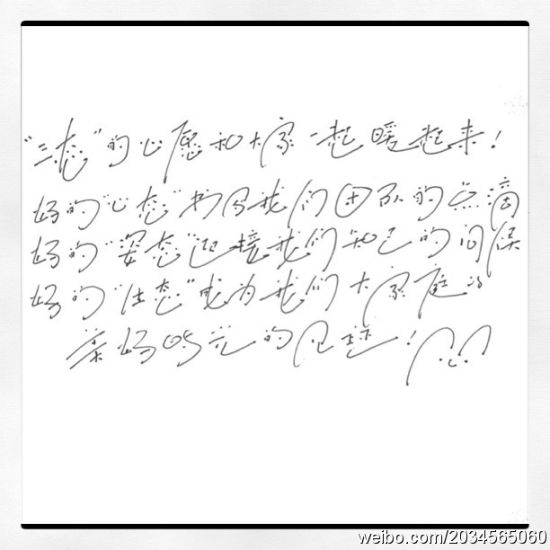 "三态"的心愿和大家一起暖起来！
好的"心态"书写我们团队的点滴
好的"姿态"迎接我们知己的问候
好的"状态"成为我们大家庭的
美好时光的见证！
weibo.com/2034565060